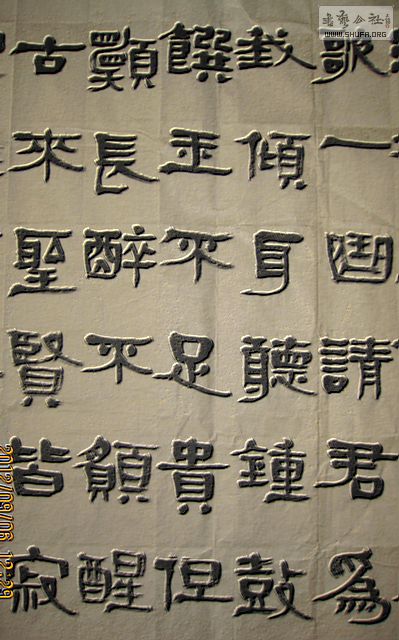 歌一曲請君為
我傾耳聽鍾鼓
饌玉不足貴但
願長醉不願醒
古來聖賢皆寂
書藝公社
WWW.SHUFA.ORG
2012/09/06 12:29